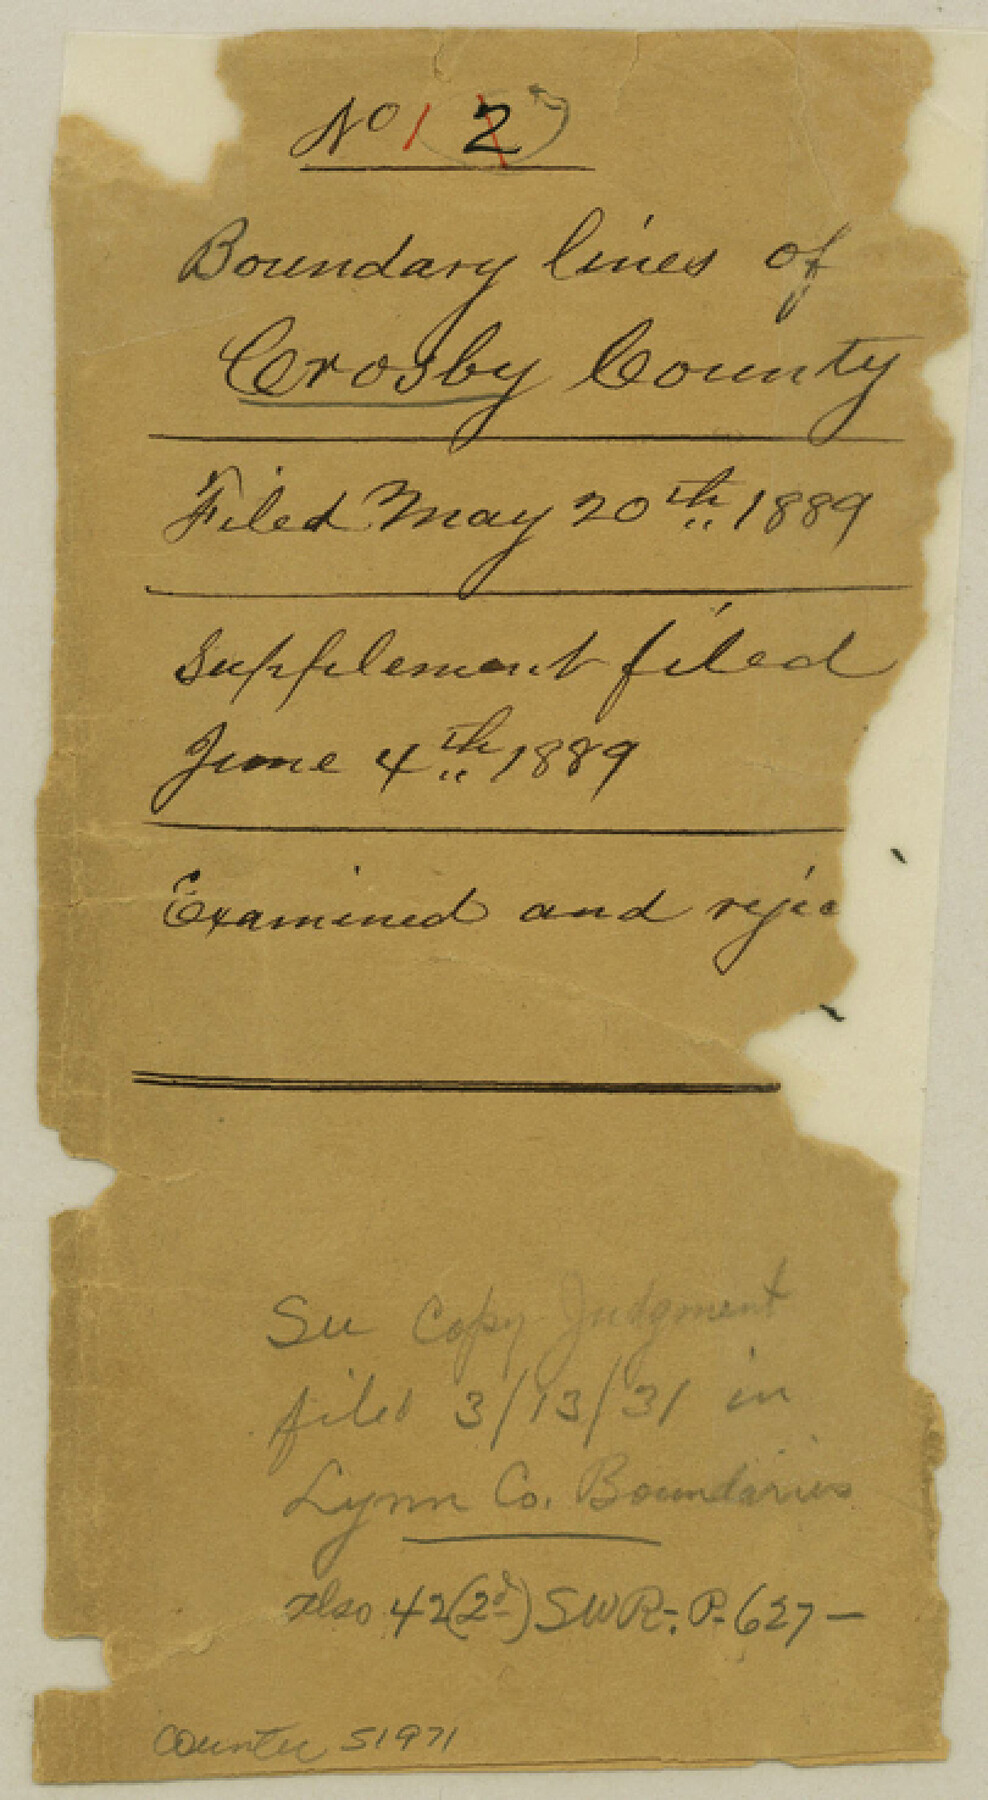 No 1 2
Boundary lines of
Crosby County
Filed May 20th 1889
Supplement filed
June 4th 1889
Examined and rejec
See Copy Judgment
filed 3/13/31 in
Lynn Co. Boundaries
also 42(2d) SWR-. P-627-
Counter 51971